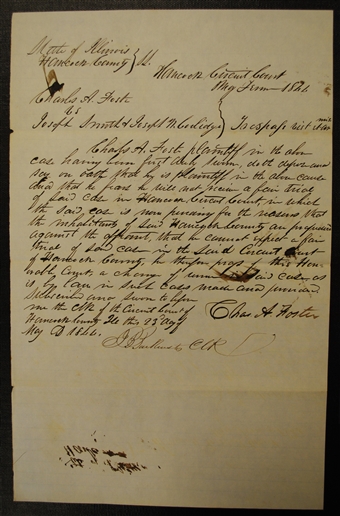 State of Illinois
Hancock County } ss.
Hancock Circuit Court
May Term 1844
Charles A. Foster
vs
Joseph Smith & Joseph W Coolidge } Trespass vi et armis
Chas A. Foster plaintiff in the above
case having been first duly sworn, doth depose and
say on oath that he is plaintiff in the above cause
and that he fears he will not receive a fair trial
of said case in Hancock Circuit Court in which
the said case is now pending for the reasons that
the inhabitants of said Hancock County are prejudiced
against the affiant, that he cannot expect a fair
trial of said case in the said Circuit Court
of Hancock County, he therefore prays of this Hon
orable Court, a change of venue said case, as
is by law in such cases made and provided
Subscribed and sworn to before
me the Clk of the Circuit Court of
Hancock County Ills this 23 day
May AD 1844.
Chas A Foster
Clk